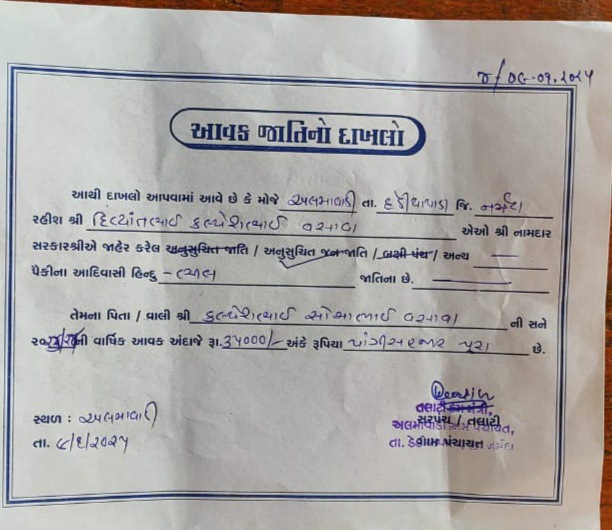 આવક જાતિનો દાખલો
આથી દાખલો આપવામાં આવે છે કે મોજે અલમાવાડી તા. દેડીયાપાડા જિ. નર્મદા
રહીશ શ્રી દિવ્યાંતભાઈ કલ્પેશભાઈ વસાવા એઓ શ્રી નામદાર
સરકારશ્રીએ જાહેર કરેલ અનુસુચિત જાતિ / અનુસુચિત જન જાતિ / બક્ષી પંચ / અન્ય
પૈકીના આદિવાસી હિન્દુ - ભીલ જાતિના છે.
તેમના પિતા / વાલી શ્રી કલ્પેશભાઈ સોમાભાઈ વસાવા ની સને
ની વાર્ષિક આવક અંદાજે રૂા. 35000/- અંકે રૂપિયા પાંત્રીસ હજાર પૂરા છે.
સ્થળ : અલમાવાડી
તલાટી કમ મંત્રી,
સરપંચ / તલાટી
અલમાવાડી ગ્રામ પંચાયત,
તા. ૯/૬/૨૦૨૫
ગ્રામ પંચાયત